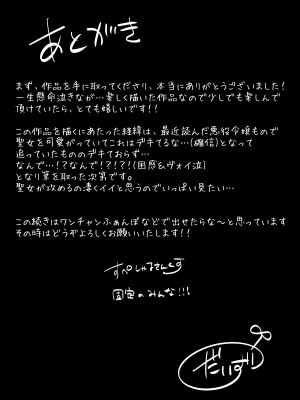 あとがき
まず、作品を手に取ってくださり、本当にありがとうございました！
一生懸命泣きなが…楽しく描いた作品なので少しでも楽しんで
頂けていたら、とても嬉しいです！！
この作品を描くにあたった経緯は、最近読んだ悪役令嬢もので
聖女を可愛がっていてこれはデキてるな…(確信)となって
追っていたもののデキておらず…
なんで…！？なんで！？！？！(困惑&ヴォイ泣)
となり筆を取った次第です。
聖女が攻めるの凄くイイと思うのでいっぱい見たい…
この続きはワンチャンふぁんぼなどで出せたらな～と思っています
その時はどうぞよろしくお願いいたします！！
すぺしゃるさんくす
固定のみんな！！！
だいず